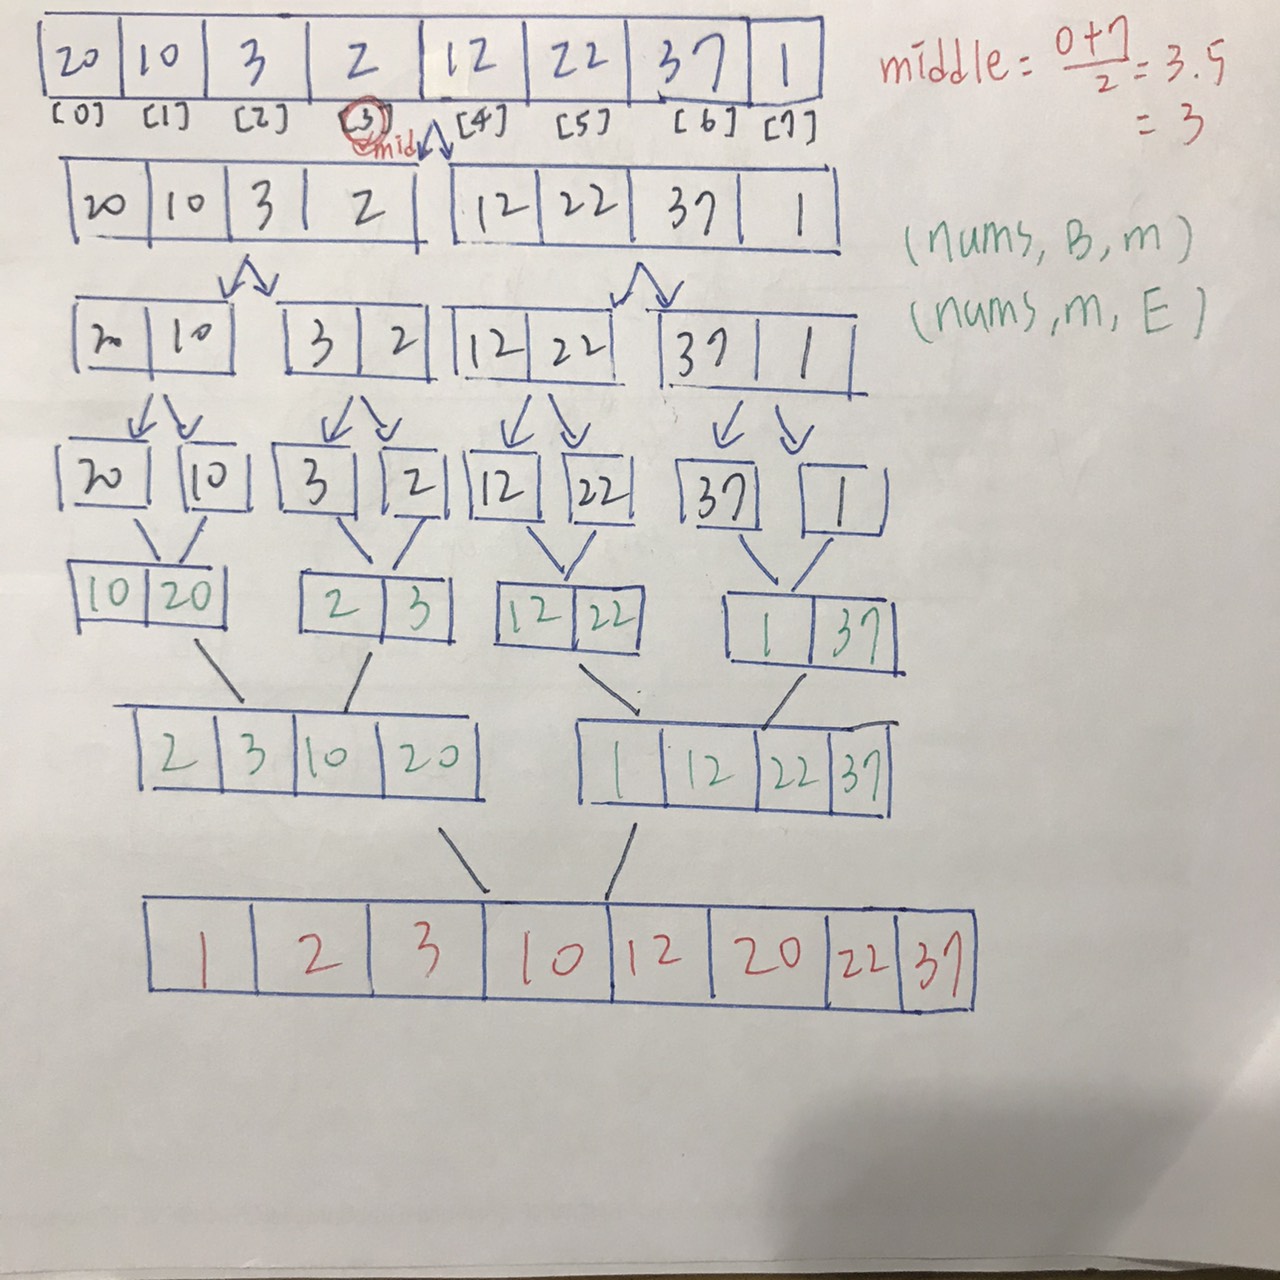 20 10 3 2 12 22 37 1
[0] [1] [2] [3] [4] [5] [6] [7]
mid
middle = 0+7/2 = 3.5
= 3
20 10 3 2 12 22 37 1
(nums, B, m)
(nums, m, E)
20 10 3 2 12 22 37 1
20 10 3 2 12 22 37 1
10 20 2 3 12 22 1 37
2 3 10 20 1 12 22 37
1 2 3 10 12 20 22 37